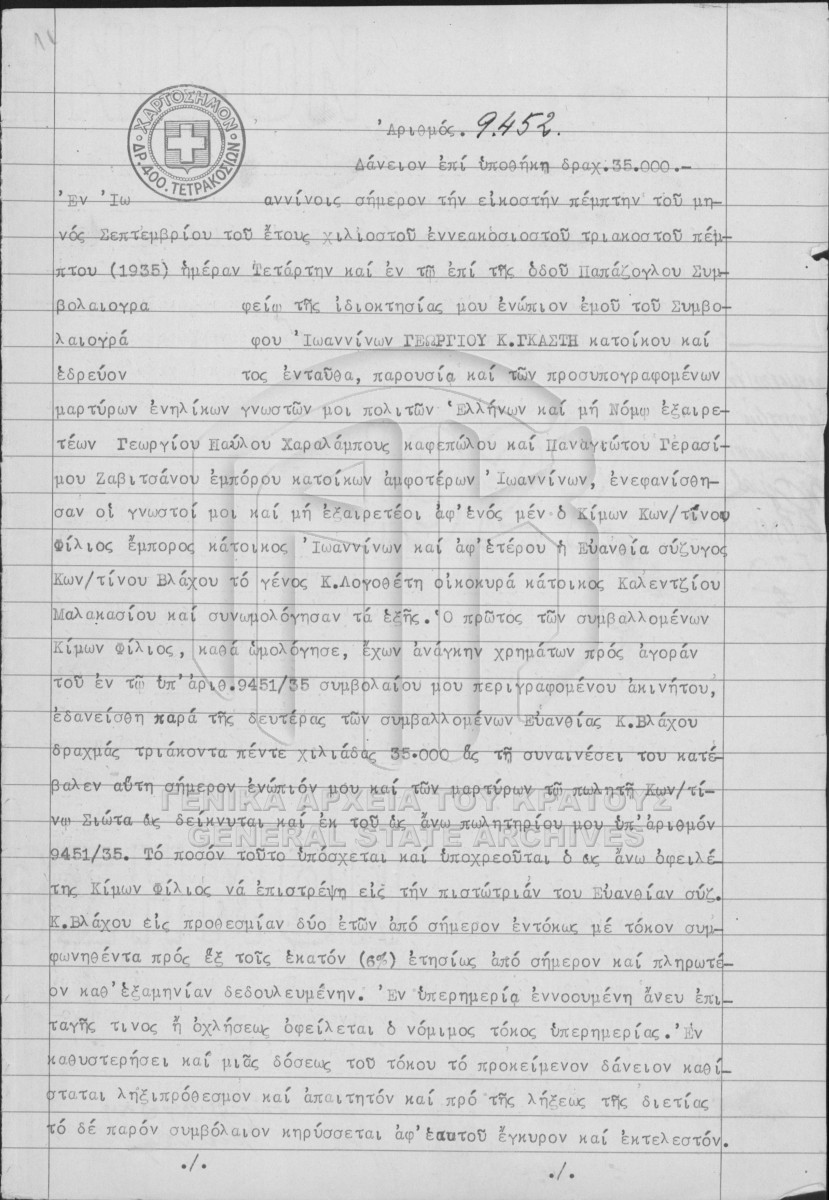 ΧΑΡΤΟΣΗΜΟΝ
ΔΡ.400. ΤΕΤΡΑΚΟΣΙΩΝ
Ἀριθμός. 9.452.
Δάνειον ἐπί ὑποθήκῃ δραχ.35.000.-
Ἐν Ἰω αννίνοις σήμερον τήν εἰκοστήν πέμπτην τοῦ μη-
νός Σεπτεμβρίου τοῦ ἔτους χιλιοστοῦ ἐννεακοσιοστοῦ τριακοστοῦ πέμ-
πτου (1935) ἡμέραν Τετάρτην καί ἐν τῷ ἐπί τῆς ὁδοῦ Παπάζογλου Συμ-
βολαιογρα φείῳ τῆς ἰδιοκτησίας μου ἐνώπιον ἐμοῦ τοῦ Συμβο-
λαιογρά φου Ἰωαννίνων ΓΕΩΡΓΙΟΥ Κ.ΓΚΑΣΤΗ κατοίκου καί
ἑδρεύον τος ἐνταῦθα, παρουσίᾳ καί τῶν προσυπογραφομένων
μαρτύρων ἐνηλίκων γνωστῶν μοι πολιτῶν Ἑλλήνων καί μή Νόμῳ ἐξαιρε-
τέων Γεωργίου Παύλου Χαραλάμπους καφεπώλου καί Παναγιώτου Γερασί-
μου Ζαβιτσάνου ἐμπόρου κατοίκων ἀμφοτέρων Ἰωαννίνων, ἐνεφανίσθη-
σαν οἱ γνωστοί μοι καί μή ἐξαιρετέοι ἀφ'ἑνός μέν ὁ Κίμων Κων/τίνου
Φίλιος ἔμπορος κάτοικος Ἰωαννίνων καί ἀφ'ἑτέρου ἡ Εὐανθία σύζυγος
Κων/τίνου Βλάχου τό γένος Κ.Λογοθέτη οἰκοκυρά κάτοικος Καλεντζίου
Μαλακασίου καί συνωμολόγησαν τά ἑξῆς. Ὁ πρῶτος τῶν συμβαλλομένων
Κίμων Φίλιος, καθά ὡμολόγησε, ἔχων ἀνάγκην χρημάτων πρός ἀγοράν
τοῦ ἐν τῷ ὑπ'ἀριθ.9451/35 συμβολαίου μου περιγραφομένου ἀκινήτου,
ἐδανείσθη παρά τῆς δευτέρας τῶν συμβαλλομένων Εὐανθίας Κ.Βλάχου
δραχμάς τριάκοντα πέντε χιλιάδας 35.000 ἅς τῇ συναινέσει του κατέ-
βαλεν αὕτη σήμερον ἐνώπιόν μου καί τῶν μαρτύρων τῷ πωλητῇ Κων/τί-
νῳ Σιώτα ὡς δείκνυται καί ἐκ τοῦ ὡς ἄνω πωλητηρίου μου ὑπ'ἀριθμόν
ΓΕΝΙΚΑ ΑΡΧΕΙΑ ΤΟΥ ΚΡΑΤΟΥΣ
GENERAL STATE ARCHIVES
9451/35. Τό ποσόν τοῦτο ὑπόσχεται καί ὑποχρεοῦται ὁ ὡς ἄνω ὀφειλέ-
της Κίμων Φίλιος νά ἐπιστρέψῃ εἰς τήν πιστώτριάν του Εὐανθίαν σύζ.
Κ.Βλάχου εἰς προθεσμίαν δύο ἐτῶν ἀπό σήμερον ἐντόκως μέ τόκον συμ-
φωνηθέντα πρός ἕξ τοῖς ἑκατόν (6%) ἐτησίως ἀπό σήμερον καί πληρωτέ-
ον καθ'ἑξαμηνίαν δεδουλευμένην. Ἐν ὑπερημερίᾳ ἐννοουμένῃ ἄνευ ἐπι-
ταγῆς τινος ἤ ὀχλήσεως ὀφείλεται ὁ νόμιμος τόκος ὑπερημερίας. Ἐν
καθυστερήσει καί μιᾶς δόσεως τοῦ τόκου τό προκείμενον δάνειον καθί-
σταται ληξιπρόθεσμον καί ἀπαιτητόν καί πρό τῆς λήξεως τῆς διετίας
τό δέ παρόν συμβόλαιον κηρύσσεται ἀφ'ἑαυτοῦ ἔγκυρον καί ἐκτελεστόν.
./. ./.